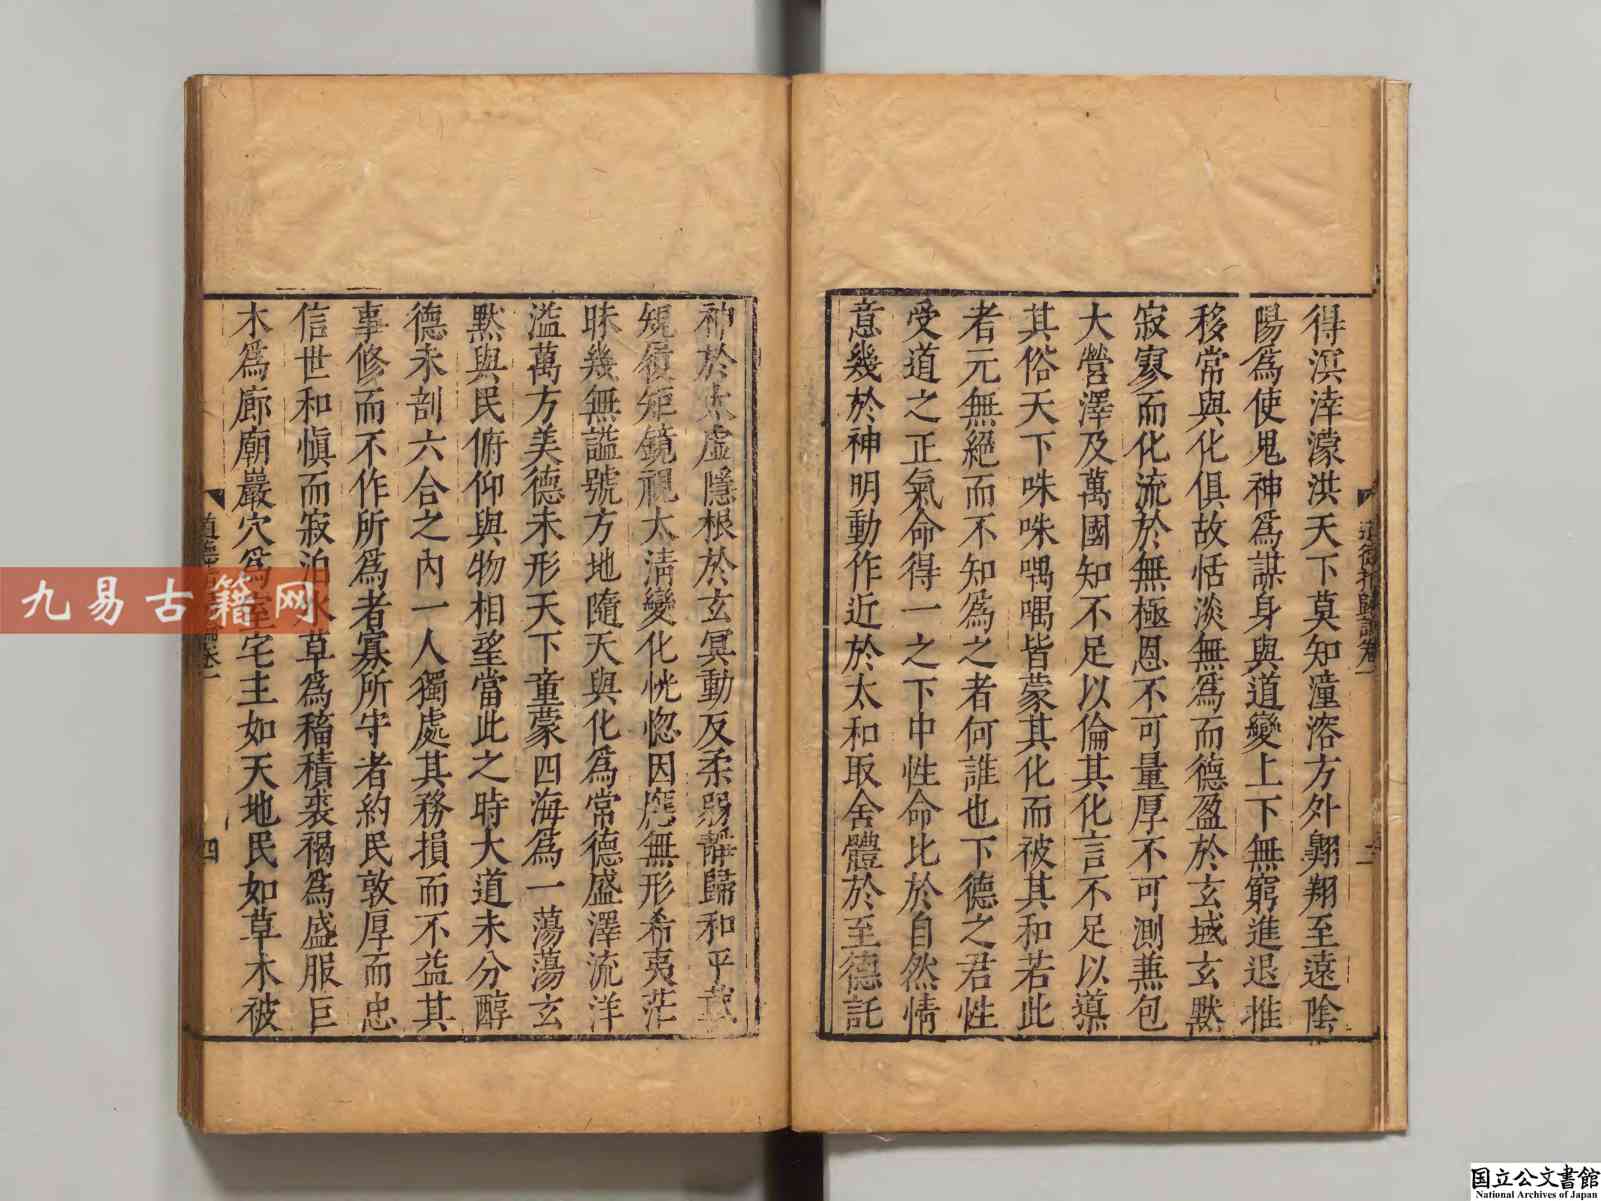 得溟涬濛洪天下莫知潼溶方外翺翔至遠陰
陽爲使鬼神爲謀身與道變上下無窮進退推
移常與化俱故恬淡無爲而德盈於玄域玄默
寂寥而化流於無極恩不可量厚不可測兼包
大營澤及萬國知不足以倫其化言不足以導
其俗天下咮咮喁喁皆蒙其化而被其和若此
者元無絕而不知爲之者何誰也下德之君性
受道之正氣命得一之下中性命比於自然情
意幾於神明動作近於太和取舍體於至德託
神於太虛隱根於玄冥動反柔弱靜歸和平載
規履矩鏡視太清變化恍惚因應無形希夷茫
昧幾無謚號方地隨天與化爲常德盛澤流洋
溢萬方美德未形天下童蒙四海爲一蕩蕩玄
默與民俯仰與物相望當此之時大道未分醇
德未剖六合之內一人獨處其務損而不益其
事修而不作所爲者寡所守者約民敦厚而忠
信世和愼而寂泊水草爲稸積裘褐爲盛服巨
木爲廊廟巖穴爲室宅主如天地民如草木被
四
九易古籍网
国立公文書館
National Archives of Japan